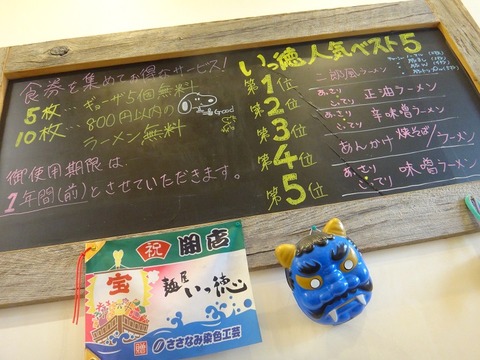 食券を集めてお得なサービス!
5枚…ギョーザ5個無料
10枚…800円以内の
ラーメン無料
Good
御使用期限は
1年間(前)とさせていただきます。
いっ徳人気ベスト5
第1位 二郎風ラーメン
第2位 あっさり こってり 正油ラーメン
第3位 あっさり こってり 辛味噌ラーメン
第4位 あんかけ 焼そば/ラーメン
第5位 あっさり こってり 味噌ラーメン
祝 開店
宝
麺屋 いっ徳
贈 ささなみ染色工芸